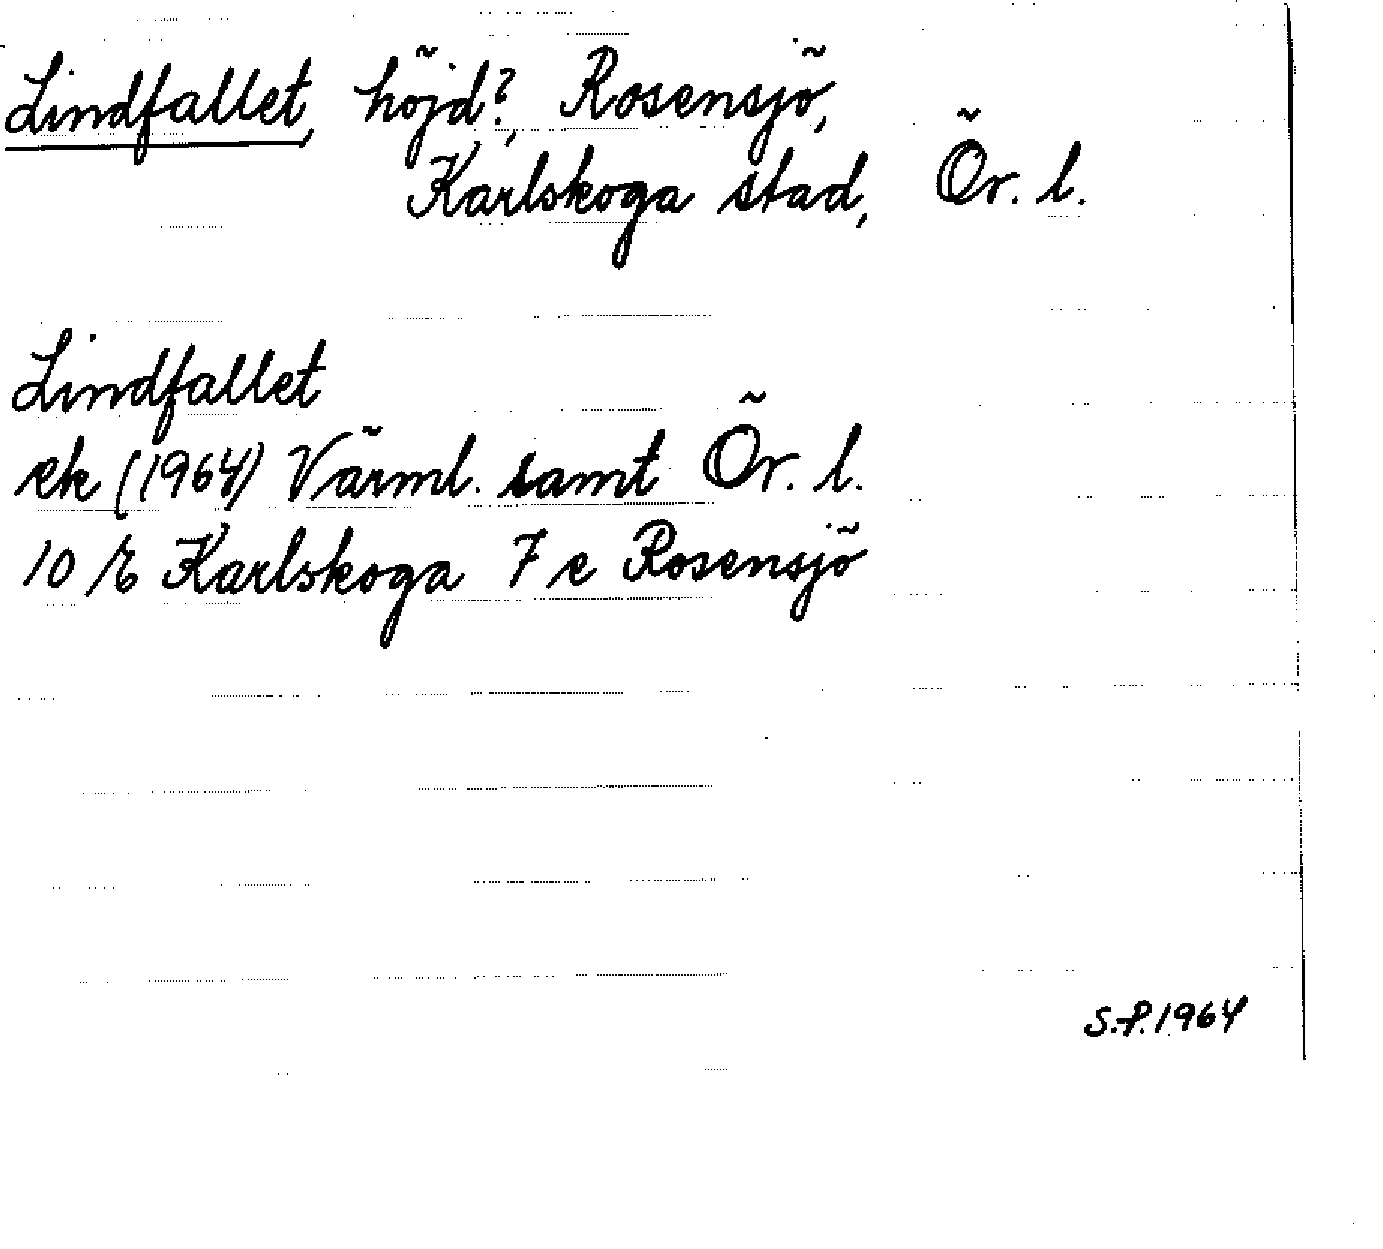 Lindfallet, höjd?, Rosensjö,
Karlskoga stad, Ör. l.
Lindfallet
ek (1964) Värml. samt Ör. l.
10 E Karlskoga 7 e Rosensjö
S.F. 1964